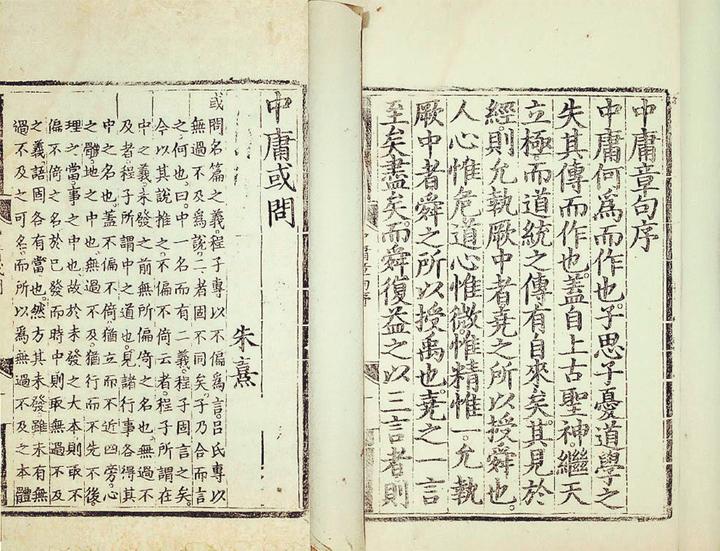 中庸章句序
中庸何爲而作也。子思子憂道學之
失其傳而作也。蓋自上古聖神繼天
立極。而道統之傳有自來矣。其見於
經。則允執厥中者堯之所以授舜也。
人心惟危道心惟微惟精惟一。允執
厥中者舜之所以授禹也。堯之一言
至矣盡矣。而舜復益之以三言者則
中庸或問
朱熹
或問名篇之義。程子專以不偏爲言。呂氏專以
無過不及爲說。二者固不同矣。子乃合而言
之何也。曰。中一名而有二義。程子固言之矣。
今以其說推之。不偏不倚云者。程子所謂在
中之義。未發之前無所偏倚之名也。無過不
及者程子所謂中之道也。見諸行事各得其
中之名也。蓋不偏不倚猶立而不近四旁。心
之體。地之中也。無過不及。猶行而不先不後。
理之當。事之中也。故於未發之大本則取不
偏不倚之名。於已發而時中。則取無過不及
之義。語固各有當也。然方其未發雖未有無
過不及之可名。而所以爲無過不及之本體